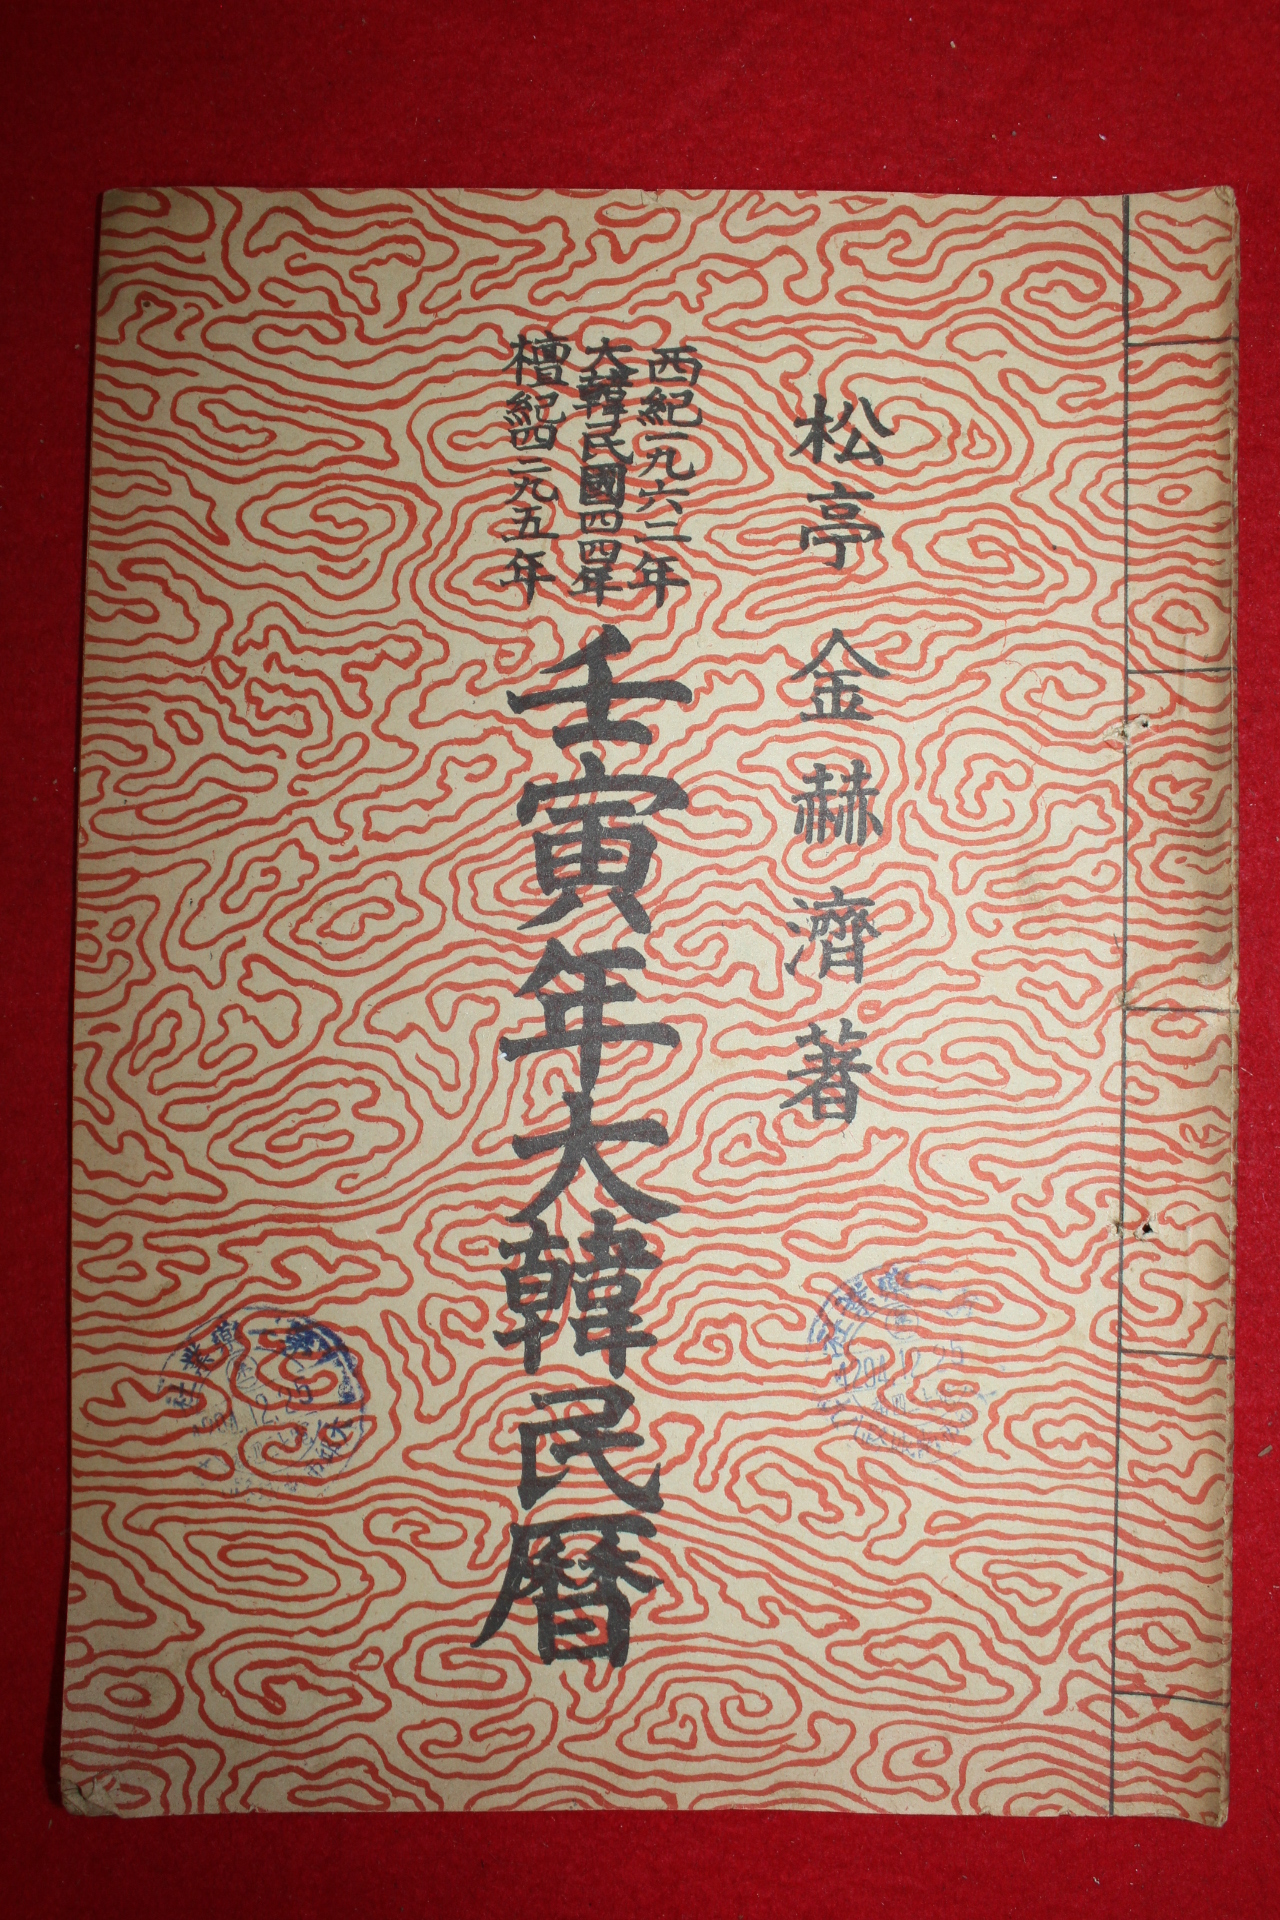 松亭 金赫濟 著
西紀一九六二年
大韓民國四四年
檀紀四二九五年
壬寅年大韓民曆
12.25
4294.12.25